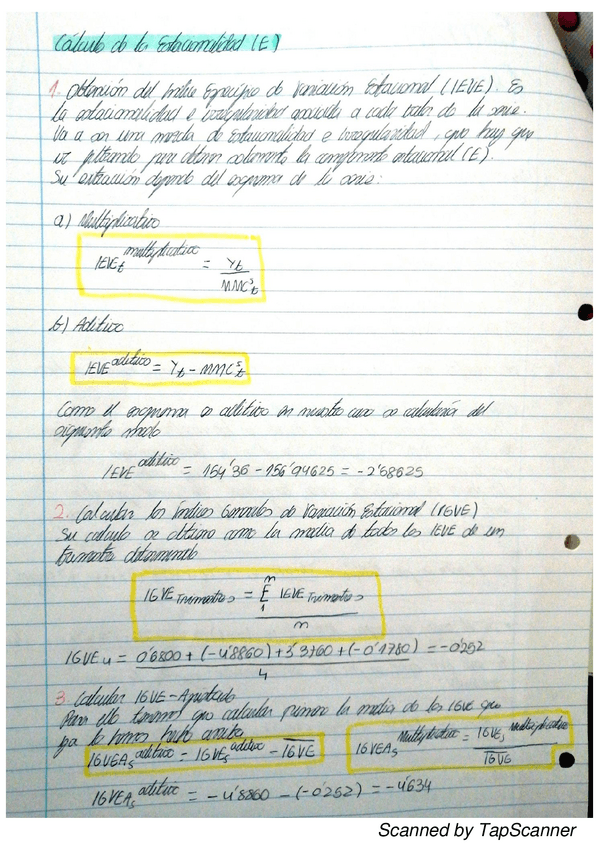 Cálculo de la Estacionalidad (E)
1. Obtención del Índice Específico de Variación Estacional (IEVE). Es
la estacionalidad e irregularidad asociada a cada valor de la serie.
Va a ser una mezcla de estacionalidad e irregularidad, que hay que
ir filtrando para obtener solamente la componente estacional (E).
Su extracción depende del esquema de la serie:
a) Multiplicativo
IEVE_t^multiplicativo = Y_t / MMC^s_t
b) Aditivo
IEVE^aditivo = Y_t - MMC^s_t
Como el esquema es aditivo en nuestro caso se calcularía del
siguiente modo
IEVE^aditivo = 154'36 - 156'94625 = -2'58625
2. Calcular los Índices Generales de Variación Estacional (IGVE)
Su cálculo se obtiene como la media de todos los IEVE de un
trimestre determinado
IGVE Trimestre s = Σ IEVE Trimestre s / n
IGVE_4 = 0'6800 + (-4'8860) + 3'3760 + (-0'1780) / 4 = -0'252
3. Calcular IGVE-Ajustado
Para ello tenemos que calcular primero la media de los IGVE que
ya lo hemos hecho
IGVEA_s^aditivo = IGVE_s^aditivo - IGVE
IGVEA_s^Multiplicativo = IGVE_s^Multiplicativo / IGVE
IGVEA_s^aditivo = -4'8860 - (-0'252) = -4'634
Scanned by TapScanner